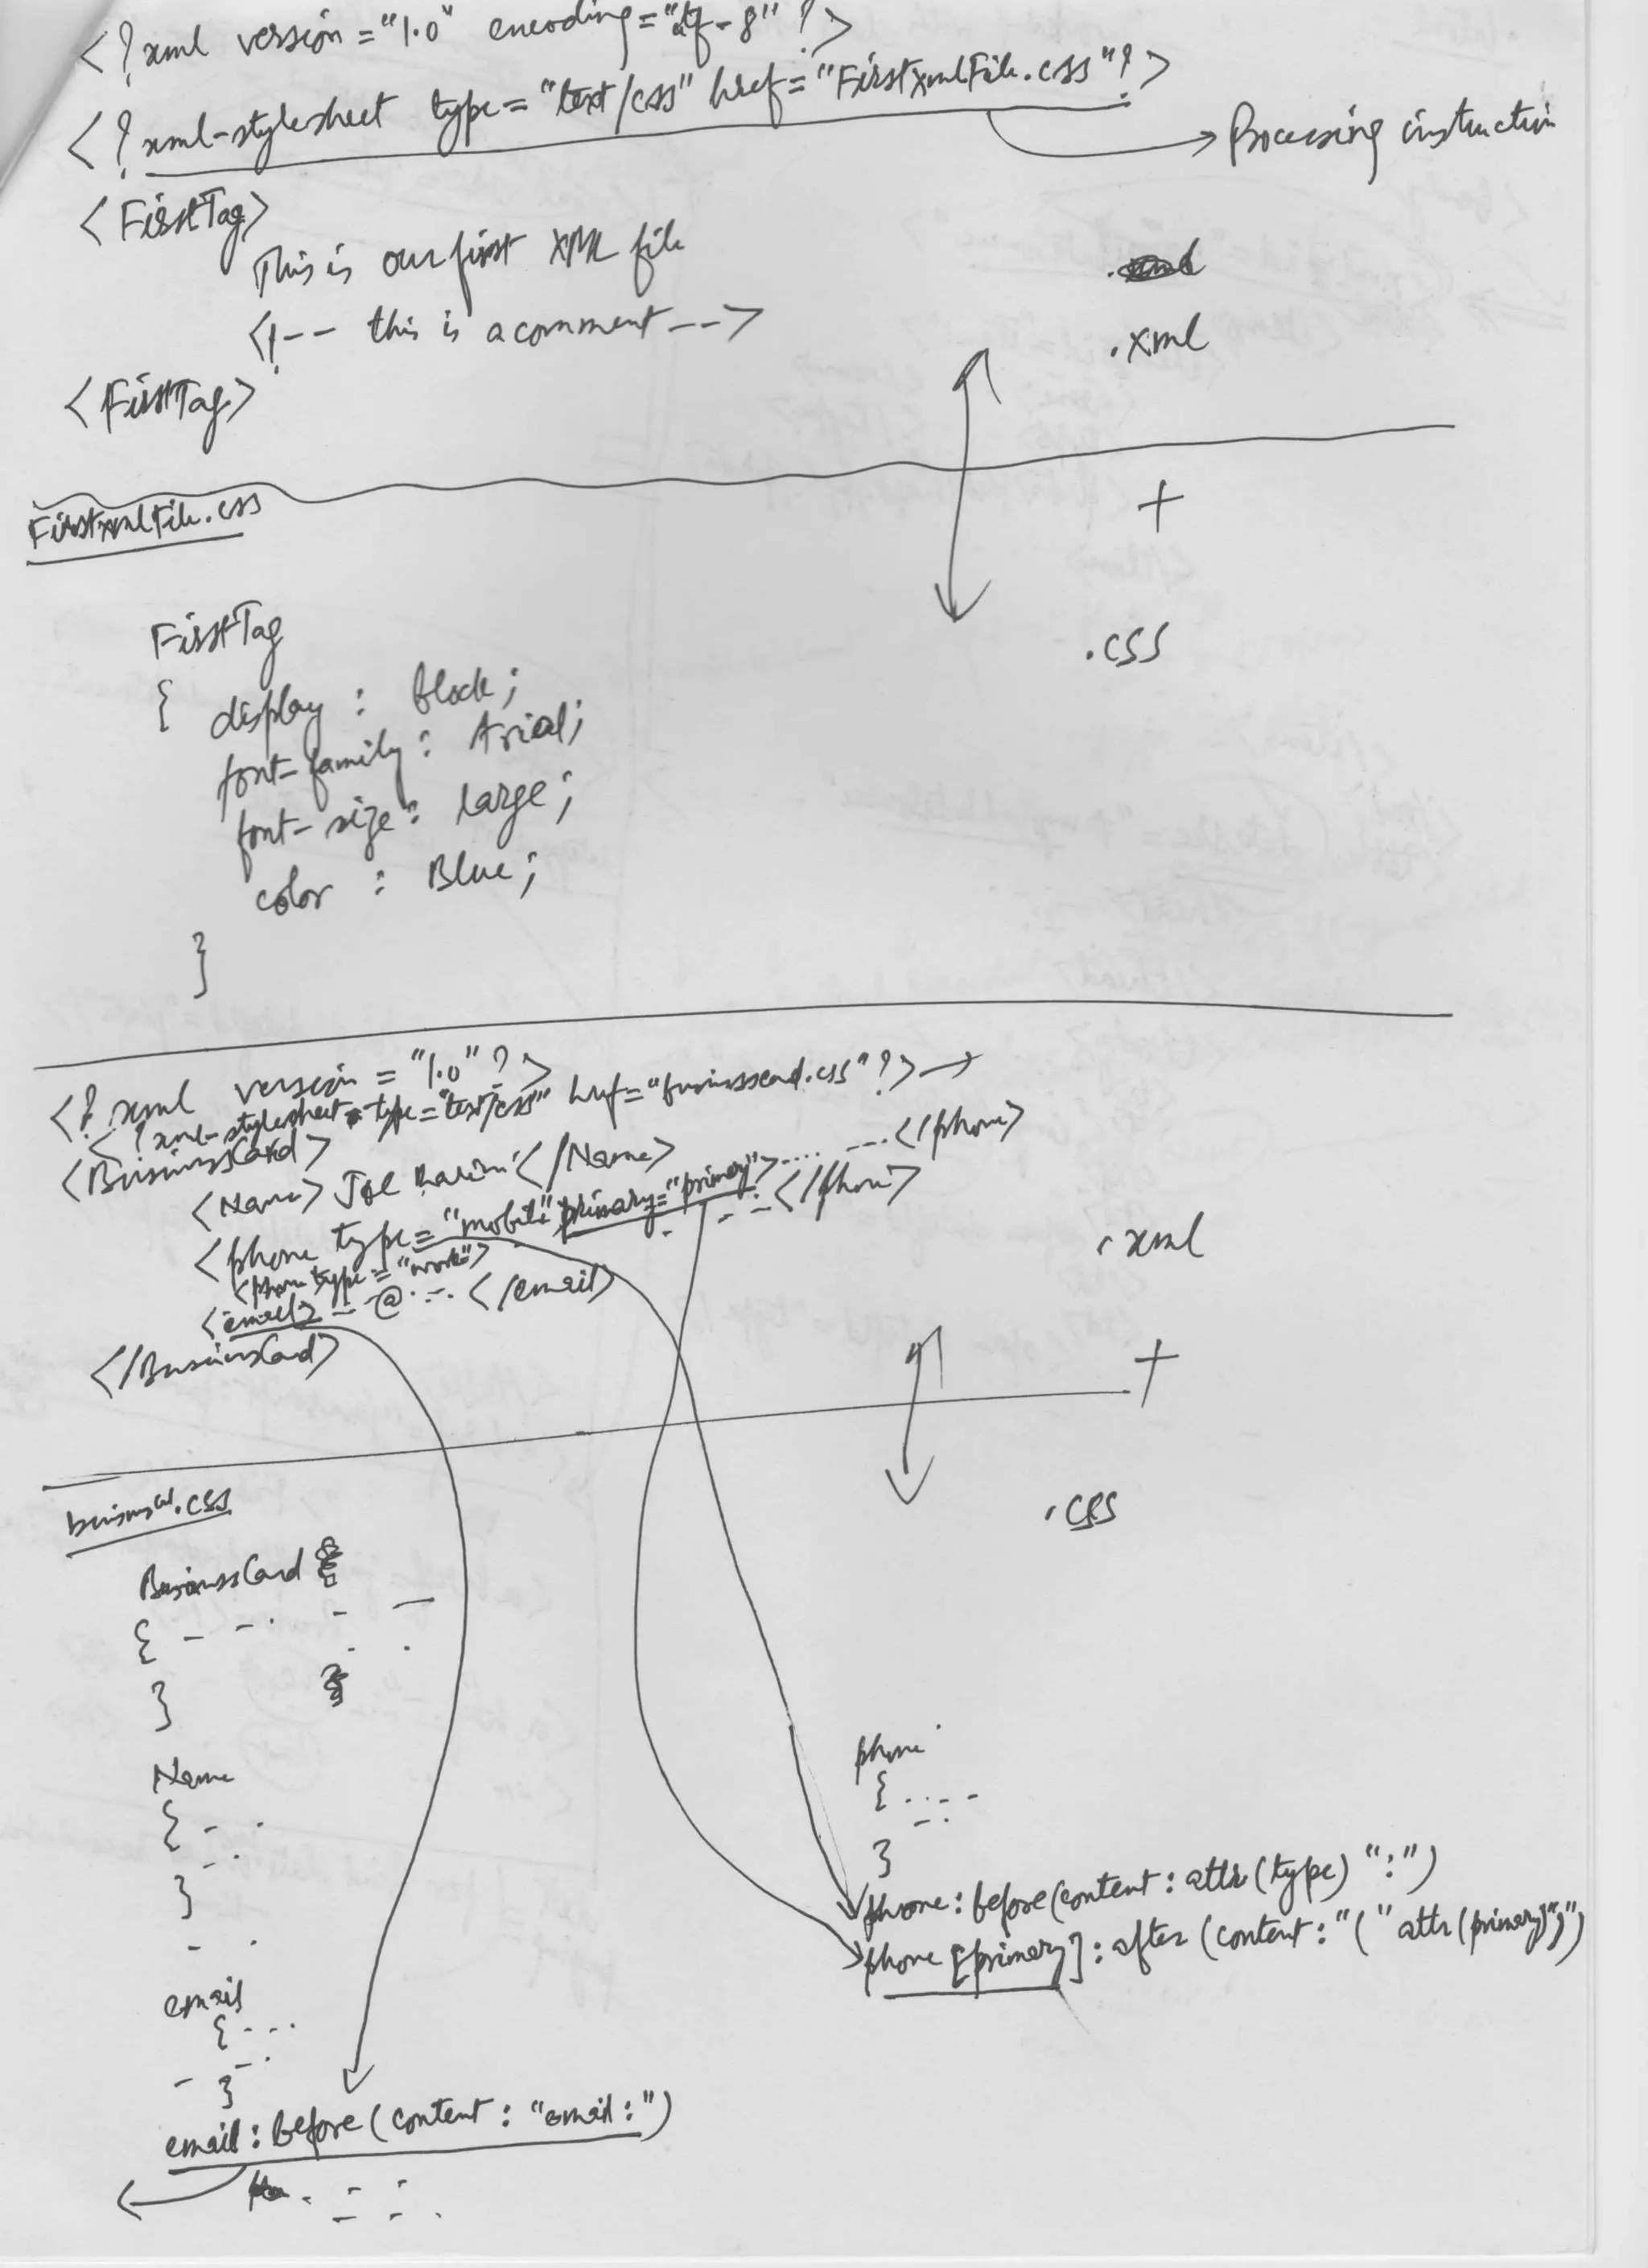 <?xml version="1.0" encoding="utf-8" ?>
<?xml-stylesheet type="text/css" href="FirstxmlFile.css"?>
Processing instruction
<FirstTag>
This is our first XML file
<!-- this is a comment -->
<FirstTag>
.xml
+
FirstxmlFile.css
.css
FirstTag
{ display : Block;
font-family: Arial;
font-size: Large;
color : Blue;
}
<?xml version = "1.0" ?>
<?xml-stylesheet type="text/css" href="businesscard.css"?>
<BusinessCard>
<Name> Joe </Name>
<phone type="mobile" primary="primary">.... ---</phone>
<phone type="work"> - - -</phone>
<email> -- @ --- </email>
</BusinessCard>
.xml
+
.css
.css
BusinessCard
{ - - - - -
}
Name
{ - -
}
email
{ ---
}
email:before(content : "email:")
phone
{ ....
}
phone:before(content: attr(type) ":")
phone [primary]: after (content: "(" attr(primary)")")